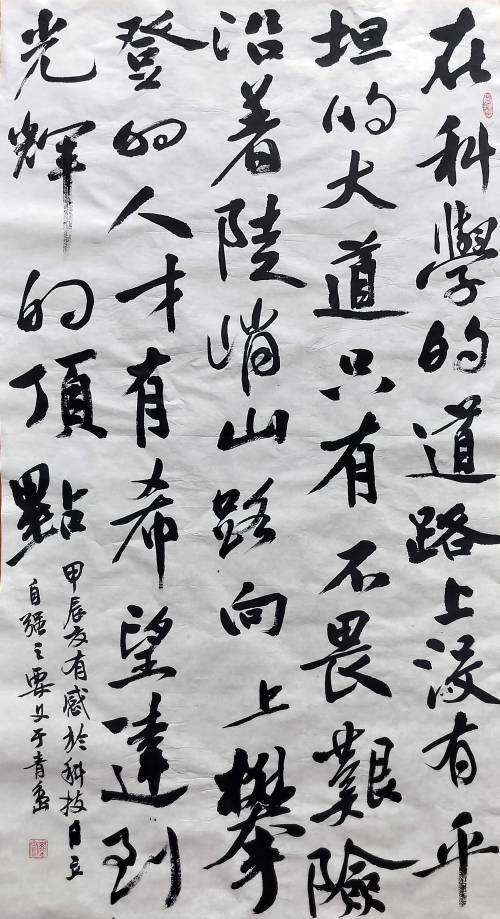 在科學的道路上沒有平
坦的大道只有不畏艱險
沿着陡峭山路向上攀
登的人才有希望達到
光輝的頂點
甲辰友有感於科技日立
自强之要义于青島